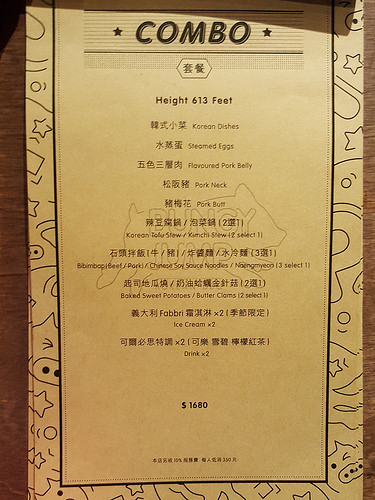 ★ COMBO ★
套餐
Height 613 Feet
韓式小菜 Korean Dishes
水蒸蛋 Steamed Eggs
五色三層肉 Flavoured Pork Belly
松阪豬 Pork Neck
豬梅花 Pork Butt
辣豆腐鍋 / 泡菜鍋 (2選1)
Korean Tofu Stew / Kimchi Stew (2 select 1)
石頭拌飯 (牛 / 豬) / 炸醬麵 / 水冷麵 (3選1)
Bibimbap (Beef / Pork) / Chinese Soy Sauce Noodles / Naengmyeon (3 select 1)
起司地瓜燒 / 奶油蛤蠣金針菇 (2選1)
Baked Sweet Potatoes / Butter Clams (2 select 1)
義大利 Fabbri 霜淇淋 ×2 (季節限定)
Ice Cream ×2
可爾必思特調 ×2 (可樂 雪碧 檸檬紅茶)
Drink ×2
$ 1680
本店另收 10% 服務費 每人低消 350 元